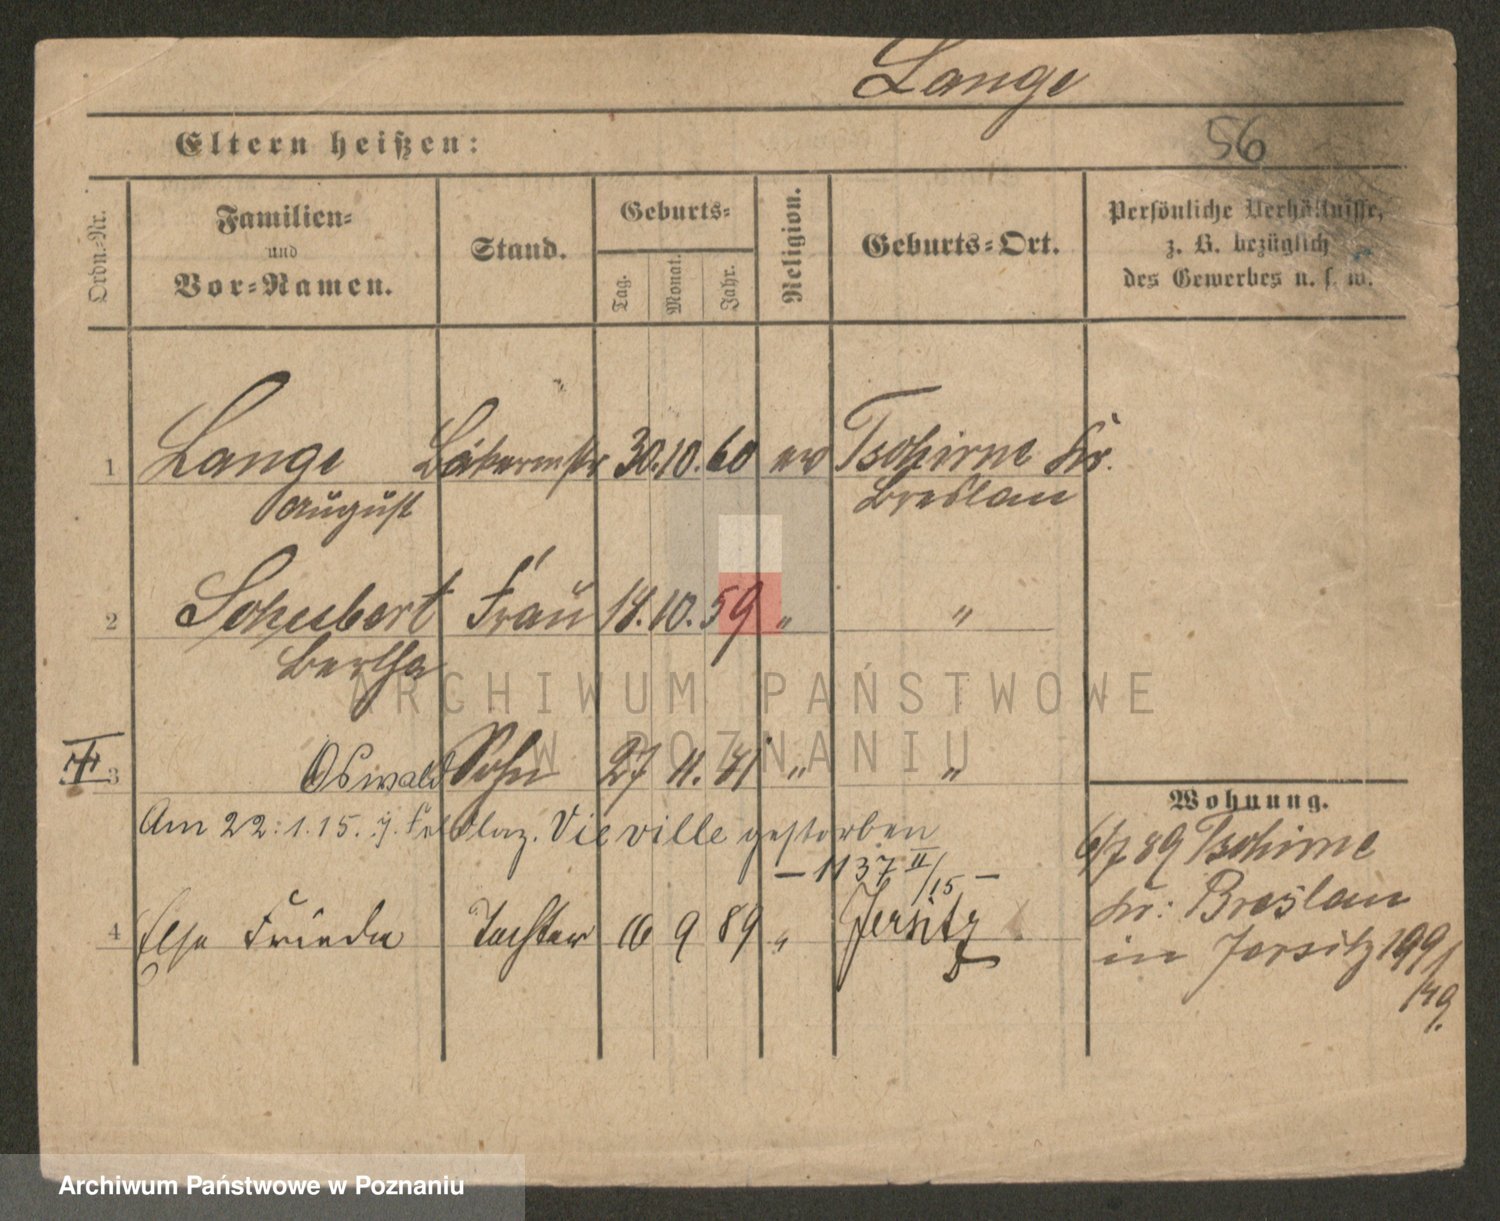 Lange
Eltern heißen:
56
Ordn.-Nr.
Familien-
und
Vor-Namen.
Stand.
Geburts-
Tag.
Monat.
Jahr.
Religion.
Geburts-Ort.
Persönliche Verhältnisse,
z. B. bezüglich
des Gewerbes u. s. w.
1 Lange Bäckermstr 30. 10. 60 ev Tschirne Kr.
August Breslau
2 Schubert Frau 18. 10. 59 " "
Bertha
3 Oswald Sohn 27 11. " "
Am 22. 1. 15. Feldlaz. Vieville gestorben
— 1137 II/15 —
4 Else Frieda Tochter 16 9 89 " Jersitz
Wohnung.
6/7 89 Tschirne
Kr. Breslau
in Jersitz 199
ARCHIWUM PAŃSTWOWE
W POZNANIU
Archiwum Państwowe w Poznaniu